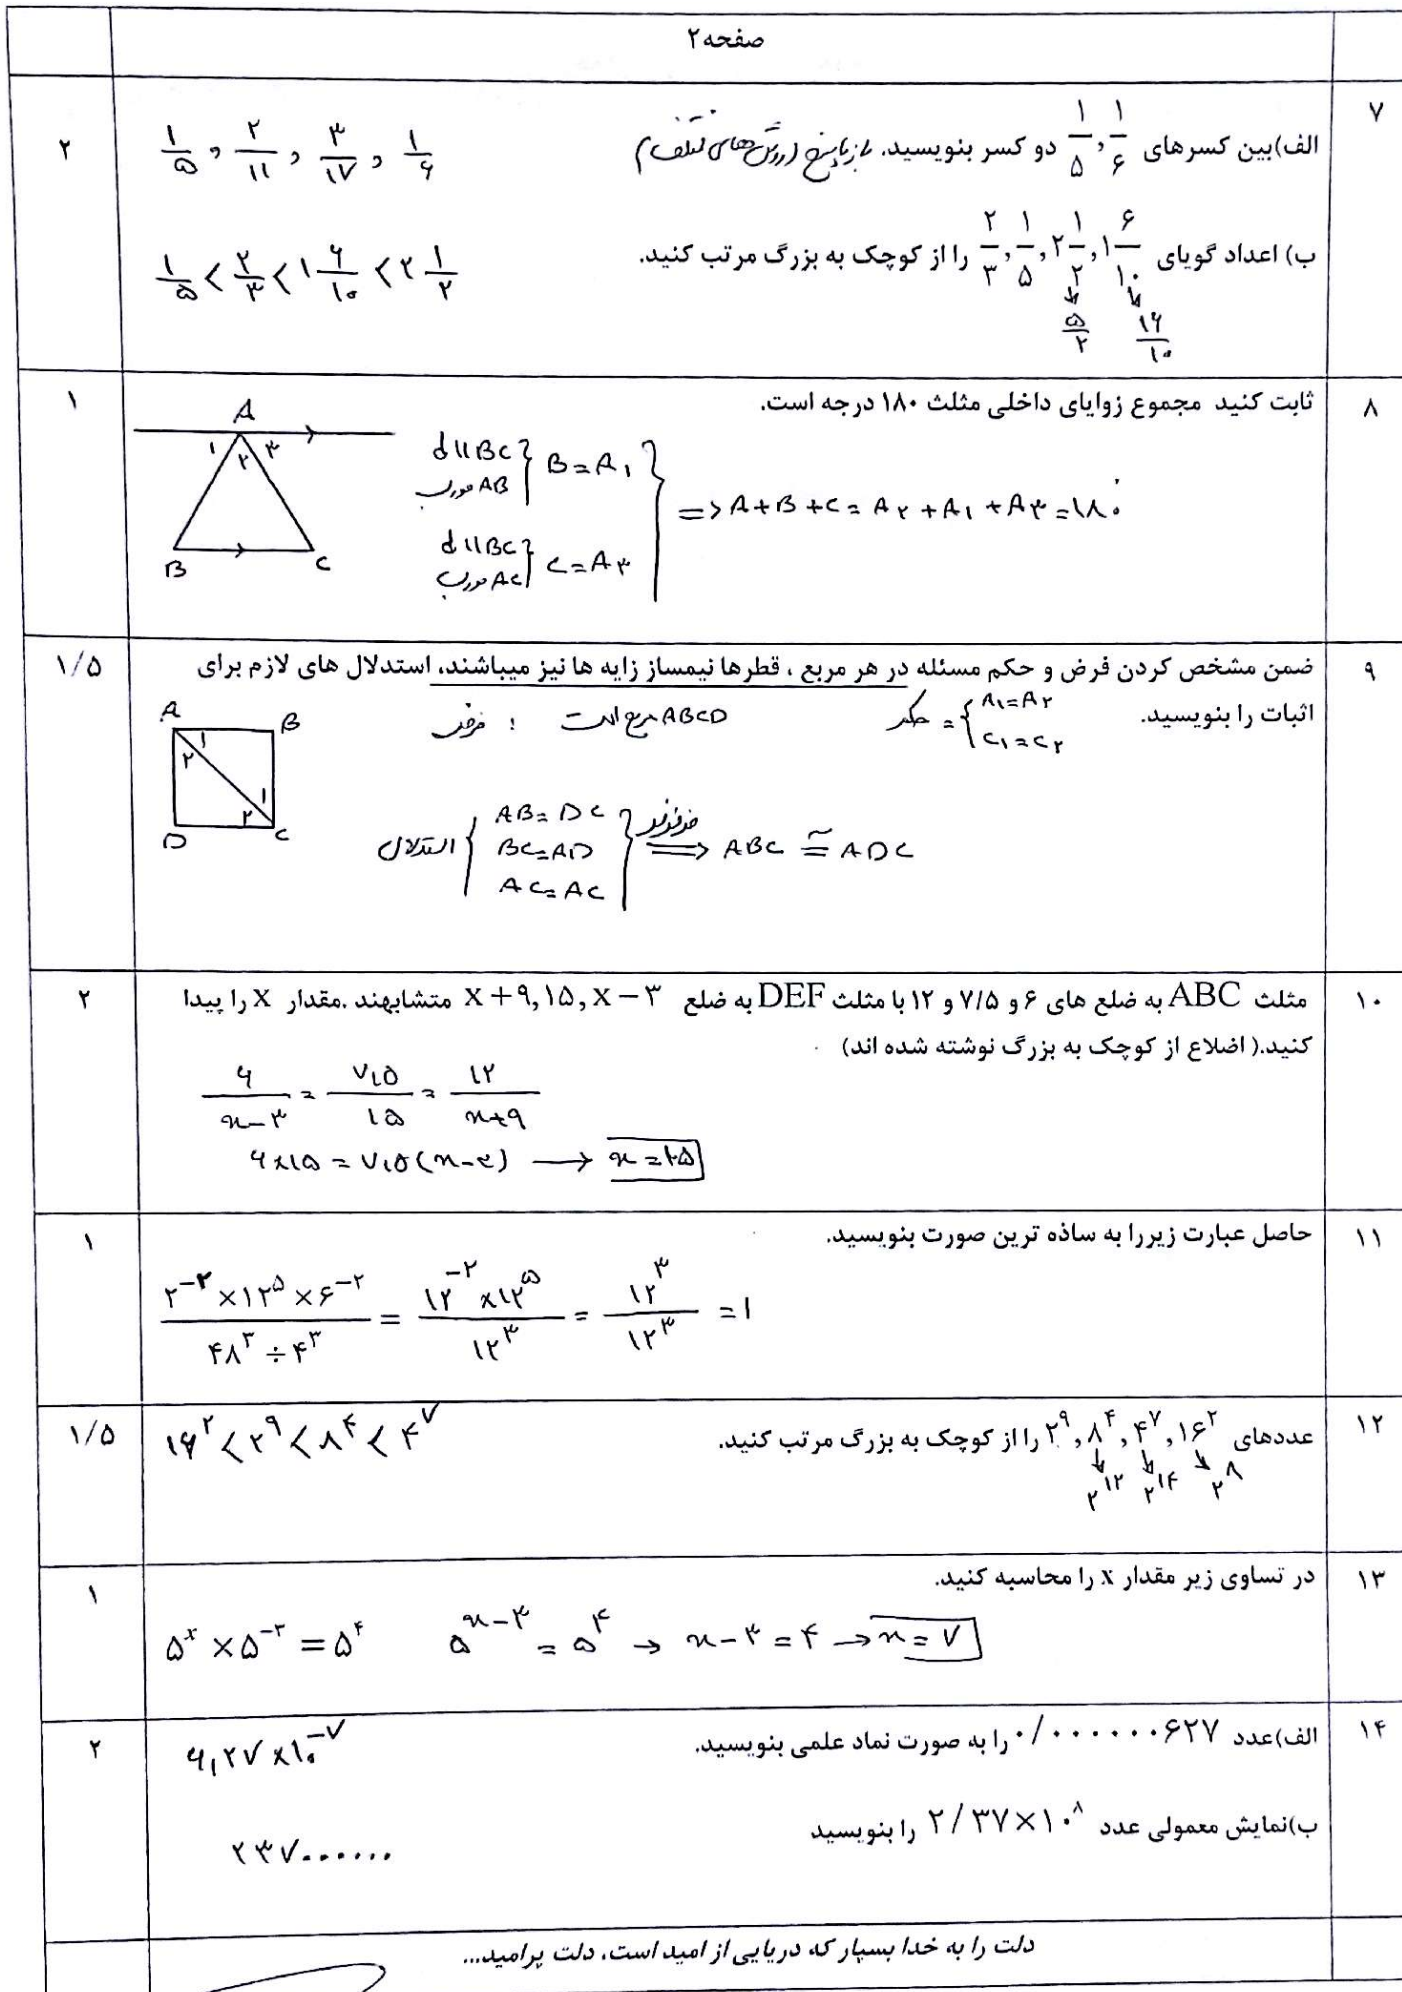 صفحه۲
۷
الف)بین کسرهای ۱/۶ , ۱/۵ دو کسر بنویسید. بازپاسخ (روش های مختلف)
۱/۵ , ۲/۱۱ , ۳/۱۷ , ۱/۶
۲
ب) اعداد گویای ۱ ۶/۱۰ , ۲ ۱/۲ , ۱/۵ , ۲/۳ را از کوچک به بزرگ مرتب کنید.
۵/۲ ۱۶/۱۰
۱/۵ < ۲/۳ < ۱ ۶/۱۰ < ۲ ۱/۲
۸
ثابت کنید مجموع زوایای داخلی مثلث ۱۸۰ درجه است.
۱
A
۱ ۲ ۳
B C
d || BC
مورب AB
B = A₁
d || BC
مورب AC
C = A۳
=> A + B + C = A۲ + A۱ + A۳ = ۱۸۰°
۹
ضمن مشخص کردن فرض و حکم مسئله در هر مربع ، قطرها نیمساز زایه ها نیز میباشند، استدلال های لازم برای
۱/۵
اثبات را بنویسید.
حکم = { A₁ = A۲
C₁ = C۲
ABCD مربع است : فرض
A B
۱ ۲
۱ ۲
D C
استدلال { AB = DC
BC = AD
AC = AC } ض ض ض => ABC ≅ ADC
۱۰
مثلث ABC به ضلع های ۶ و ۷/۵ و ۱۲ با مثلث DEF به ضلع x+۹,۱۵,x−۳ متشابهند .مقدار x را پیدا
۲
کنید.( اضلاع از کوچک به بزرگ نوشته شده اند)
۶/(x−۳) = ۷٫۵/۱۵ = ۱۲/(x+۹)
۶×۱۵ = ۷٫۵(x−۳) → x = ۱۵
۱۱
حاصل عبارت زیررا به ساده ترین صورت بنویسید.
۱
(۲⁻² × ۱۲⁵ × ۶⁻²)/(۴۸³ ÷ ۴³) = (۱۲⁻² × ۱۲⁵)/۱۲³ = ۱۲³/۱۲³ = ۱
۱۲
عددهای ۱۶² , ۴⁷ , ۸⁴ , ۲⁹ را از کوچک به بزرگ مرتب کنید.
۲¹² ۲¹⁴ ۲⁸
۱۶² < ۲⁹ < ۸⁴ < ۴⁷
۱/۵
۱۳
در تساوی زیر مقدار x را محاسبه کنید.
۱
۵ˣ × ۵⁻³ = ۵⁴ ۵ˣ⁻³ = ۵⁴ → x − ۳ = ۴ → x = ۷
۱۴
الف)عدد ۰/۰۰۰۰۰۰۶۲۷ را به صورت نماد علمی بنویسید.
۶٫۲۷ × ۱۰⁻⁷
۲
ب)نمایش معمولی عدد ۲/۳۷×۱۰⁸ را بنویسید
۲۳۷۰۰۰۰۰۰
دلت را به خدا بسپار که دریایی از امید است، دلت پرامید...